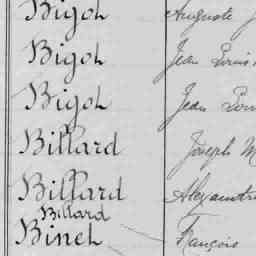 Bigot Auguste J
Bigot Jean Louis
Bigot Jean Lou
Billard Joseph M
Billard Alexandr
Billard
Binet François